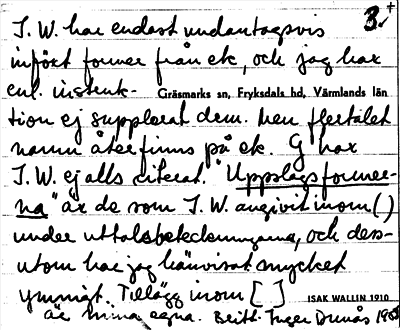 3.
I.W. har endast undantagsvis
infört former från ek, och jag har
enl. instruk- Gräsmarks sn, Fryksdals hd, Värmlands län
tion ej supplerat dem. Men flertalet
namn återfinns på ek. G har
I.W. ej alls citerat. "Uppslagsformer-
na" är de som I.W. angivit inom ( )
under uttalsbeteckningarna, och dess-
utom har jag hänvisat mycket
ymnigt. Tillägg inom [ ] ISAK WALLIN 1910
är mina egna. Britt Inger